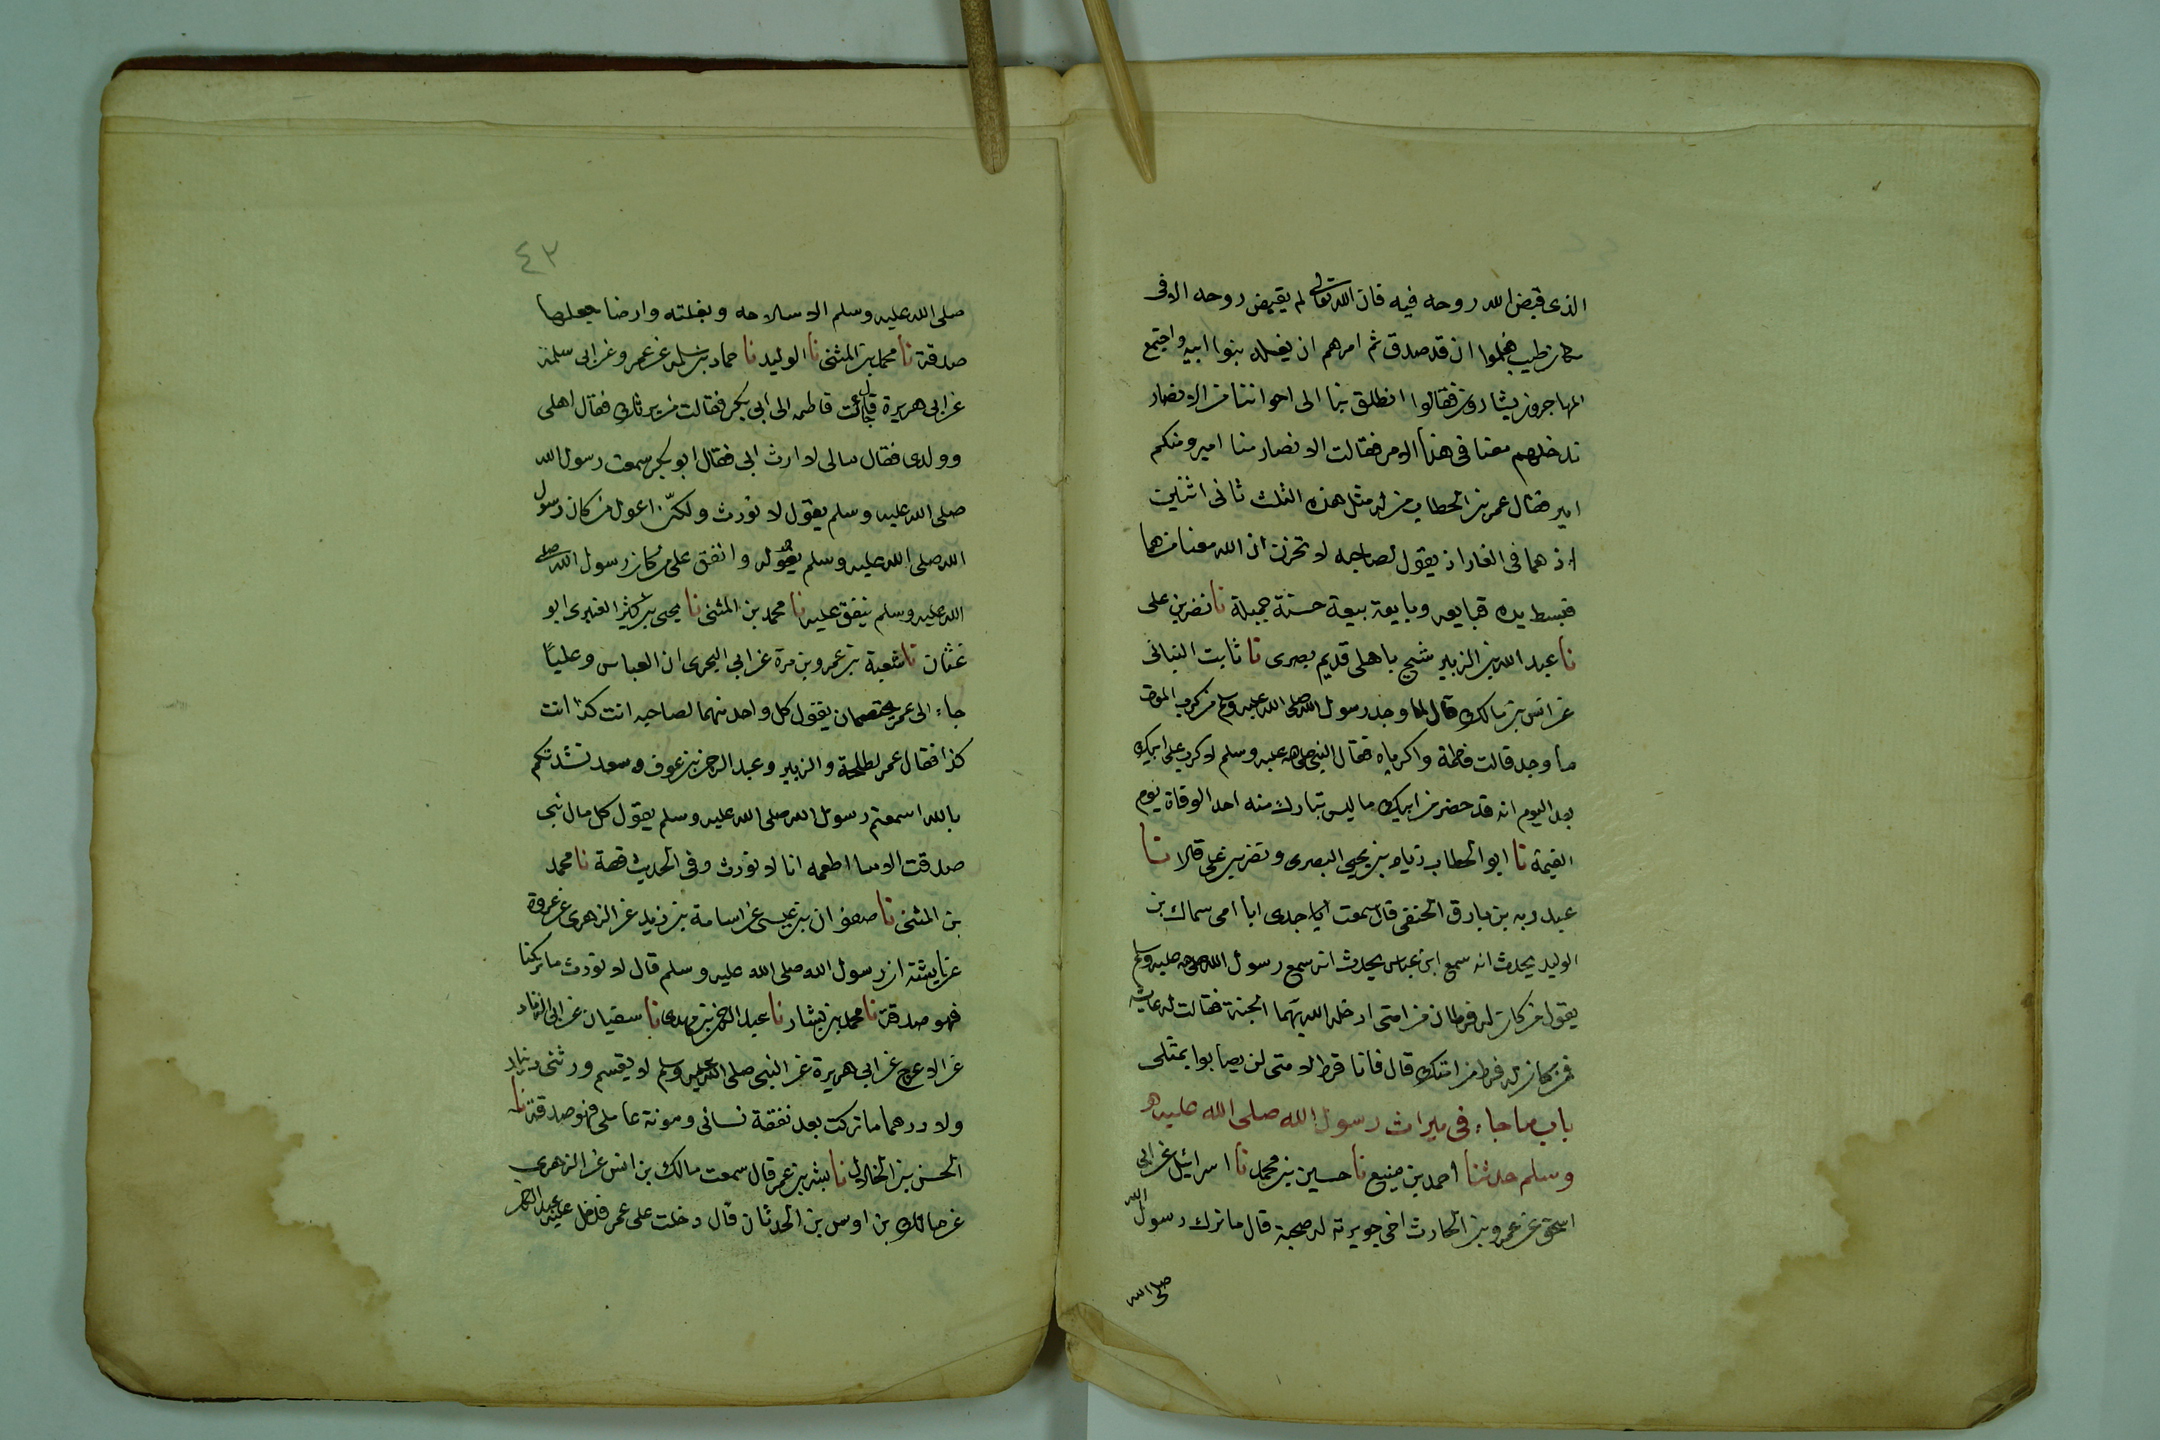 الذى قبض الله روحه فيه فان الله تعالى لم يقبض روحه الا فى
مكان طيب فعلموا ان قد صدق ثم امرهم ان يغسله بنوا ابيه واجتمع
المهاجرون يتشاورون فقالوا انطلق بنا الى اخواننا من الانصار
ندخلهم معنا فى هذا الامر فقالت الانصار منا امير ومنكم
امير فقال عمر بن الخطاب من له مثل هذه الثلث ثانى اثنين
اذ هما فى الغار اذ يقول لصاحبه لا تحزن ان الله معنا من هما
فبسط يده فبايعه وبايعه بيعة حسنة جميلة نا نصر بن على
نا عبد الله بن الزبير شيخ باهلى قديم بصرى نا ثابت البنانى
عن انس بن مالك قال لما وجد رسول الله صلى الله عليه وسلم من كرب الموت
ما وجد قالت فاطمة واكرباه فقال النبى صلى الله عليه وسلم لا كرب على ابيك
بعد اليوم انه قد حضر من ابيك ما ليس بتارك منه احد الوفاة يوم
القيمة نا ابو الخطاب زياد بن يحيى البصرى ونصر بن على قالا نا
عبد ربه بن بارق الحنفى قال سمعت ابا جدى ابا امى سماك بن
الوليد يحدث انه سمع ابن عباس يحدث انه سمع رسول الله صلى الله عليه وسلم
يقول من كان له فرطان من امتى ادخله الله بهما الجنة فقالت له عائشة
فمن كان له فرط من امتك قال فانا فرط لامتى لن يصابوا بمثلى
باب ما جاء فى ميراث رسول الله صلى الله عليه
وسلم حدثنا احمد بن منيع نا حسين بن محمد نا اسرائيل عن ابى
اسحق عن عمرو بن الحارث اخى جويرية له صحبة قال ما ترك رسول الله
صلى الله
٤٣
صلى الله عليه وسلم الا سلاحه وبغلته وارضا جعلها
صدقة نا محمد بن المثنى نا الوليد نا حماد بن سلمه عن محمد بن عمرو عن ابى سلمة
عن ابى هريرة قال جاءت فاطمه الى ابى بكر فقالت من يرثك فقال اهلى
وولدى فقال مالى لا ارث ابى فقال ابو بكر سمعت رسول الله
صلى الله عليه وسلم يقول لا نورث ولكنّ اعول من كان رسول
الله صلى الله عليه وسلم يعوله وانفق على من كان رسول الله صلى
الله عليه وسلم ينفق عليه نا محمد بن المثنى نا يحيى بن كثير العنبرى ابو
غسان نا شعبة عن عمرو بن مرة عن ابى البحرى ان العباس وعلياً
جاء الى عمر يختصمان يقول كل واحد منهما لصاحبه انت كذا انت
كذا فقال عمر لطلحة والزبير وعبد الرحمن بن عوف وسعد نشدتكم
بالله اسمعتم رسول الله صلى الله عليه وسلم يقول كل مال نبى
صدقت الا ما اطعمه انا لا نورث وفى الحديث قصة نا محمد
بن المثنى نا صفوان بن عيسى عن اسامة بن زيد عن الزهرى عن عروة
عن عايشة ان رسول الله صلى الله عليه وسلم قال لا نورث ما تركنا
فهو صدقة نا محمد بن بشار نا عبد الرحمن بن مهدى نا سفيان عن ابى الزناد
عن الاعرج عن ابى هريرة عن النبى صلى الله عليه وسلم لا يقسم ورثتى دينار
ولا درهما ما تركت بعد نفقة نسائى ومونة عاملى فهو صدقة نا
الحسن بن الخلال نا بشر بن عمر قال سمعت مالك بن انس عن الزهرى
عن مالك بن اوس بن الحدثان قال دخلت على عمر فدخل عليه عبد الرحمن